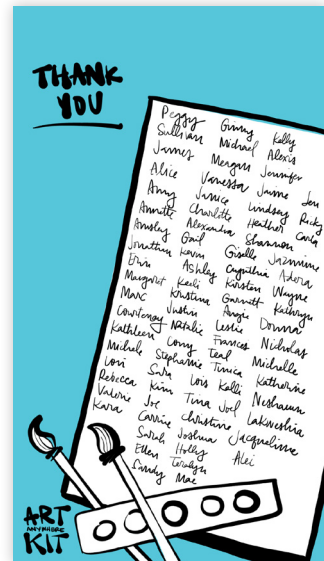 THANK
YOU
Peggy Ginny Kelly
Sullivan Michael Alexis
James Meagan Jennifer
Alice Vanessa Jaime Jen
Amy Janice Lindsay Ricky
Annette Charlotte Heather Carla
Ansley Alexandra Shannon
Jonathan Gail Giselle Jazmine
Erin Karen Cynthia Adora
Margaret Ashley Kirsten Wayne
Marc Keeli Garnett Kathryn
Courtenay Kristina Angie Donna
Kathleen Justin Leslie Nicholas
Michele Natalie Frances Michelle
Lori Corry Teal Katherine
Rebecca Stephanie Timica Neshaunn
Valerie Sara Lois Kalli Lakweshia
Kara Kim Tina Joel Jacqueline
Joe Christine Alei
Carrie Joshua
Sarah Holly
Ellen Teralyn
Sindy Mae
ART
ANYWHERE
KIT